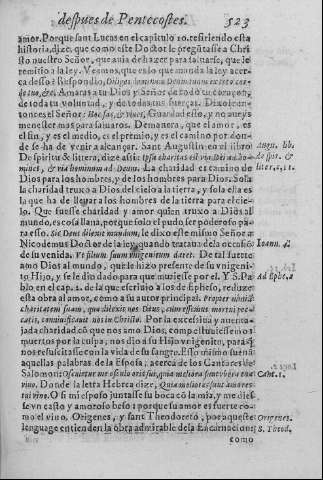 despues de Pentecostes. 523
amor. Porque sant Lucas en el capitulo 10. refiriendo esta
historia, dize, que como este Doctor le preguntasse a Chri
sto nuestro Señor, que auia de hazer para saluarse, que le
remitio a la ley. Veamos, que es lo que manda la ley acer-
ca desso? Respondio, Diliges Dominum Deum tuum ex toto cor-
de tuo, &c. Amaras a tu Dios y Señor de todo tu coraçon,
de toda tu voluntad, y de todas tus fuerças. Dixo enton-
tonces el Señor: Hoc fac, & viues, Guarda esso, y no aueys
menester mas para saluaros. De manera, que el amor, es
el fin, y es el medio, es el premio, y es el camino por don-
de se ha de venir a alcançar. Sant Augustin en el libro
De spiritu & littera, dize assi: Ipsa charitas est via Dei ad ho-
mines, & via hominum ad Deum. La charidad es camino de
Dios para los hombres, y de los hombres para Dios. Sola
la charidad truxo a Dios del cielo a la tierra, y sola ella es
la que ha de lleuar a los hombres de la tierra para el cie-
lo. Que fuesse charidad y amor quien truxo a Dios al
mundo, es cosa llana, porque solo el pudo ser poderoso pa-
ra esso. Sic Deus dilexit mundum, le dixo este mismo Señor a
Nicodemus Doctor de la ley, quando trataua de la ocasion
de su venida. Vt filium suum vnigenitum daret. De tal suerte
amo Dios al mundo, que le hizo presente de su vnigeni-
to Hijo, y se le dio dado para que muriesse por el. Y S. Pa-
blo en el cap. 2. de la que escriuio a los de Epheso, reduze
esta obra al amor, como a su autor principal. Propter nimiam
charitatem suam, qua dilexit nos Deus, cum essemus mortui pec-
catis, conuiuificauit nos in Christo. Por la excessiua y auenta-
jada charidad cõ que nos amo Dios, como estuuiessemos
muertos por la culpa, nos dio a su Hijo vnigenito, para q̃
nos resuscitasse con la vida de su sangre. Esso mismo suenã
aquellas palabras de la Esposa, acerca de los Cantares de
Salomon: Osculetur me osculo oris sui, quia meliora sunt vbera tua
vino. Donde la letra Hebrea dize, Quia meliores sunt amores
tui vino. O si mi esposo juntasse su boca cõ la mia, y me dies
se vn casto y amoroso beso! porque su amor es fuerte co-
mo el vino. Origenes, y sant Theodoreto, por aqueste
lenguage entienden la obra admirable de la Encarnacion:
como
Aug. lib.
de spir. &
liter.
Ioann.
Ad Ephe. 2
Cant. 1.
Origenes.
S. Theod.